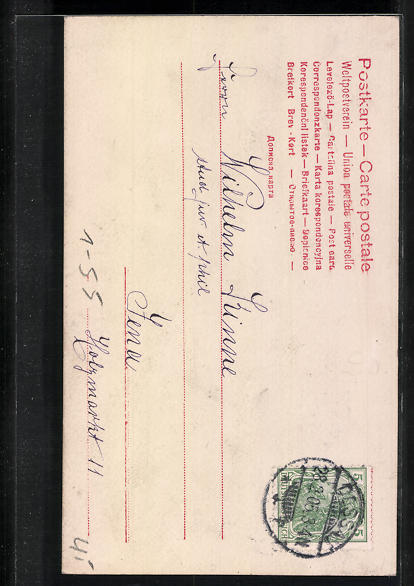 Postkarte — Carte postale
Weltpostverein — Union postale universelle
Levelező-Lap — Cartolina postale — Post card
Correspondenzkarte — Karta korespondencyjna
Korespondenční lístek — Briefkaart — Dopisnice
Brefkort Brev-Kort — Открытое письмо —
Дописна карта
Herrn Wilhelm Kinne
stud. jur. et phil.
Jena
Holzmarkt 11
1-55
5 5